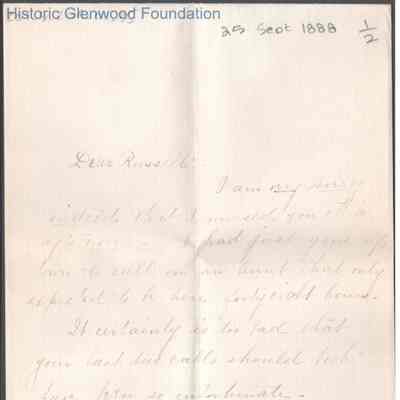 Historic Glenwood Foundation
25 Sept 1888 1/2
Dear Russell:
I am very sorry
indeed that I missed you this
afternoon. had just gone up
town to call on an aunt that only
expected to be here forty eight hours.
It certainly is too bad that
your last two calls should both
have been so unfortunate.